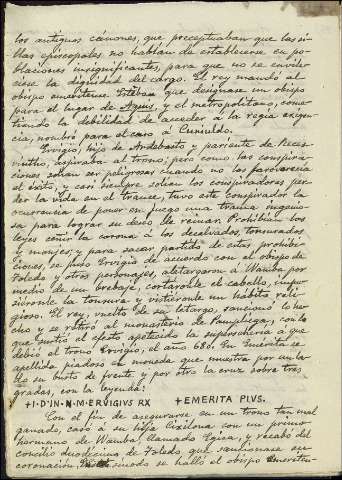 los antiguos cánones, que preceptuaban que las si-
llas episcopales no habían de establecerse en po-
blaciones insignificantes, para que no se envile-
ciese la dignidad del cargo. El rey mandó al
obispo emeritense Esteban que designase un obispo
para el lugar de Aquis, y el metropolitano, come-
tiendo la debilidad de acceder a la regia exigen-
cia, nombró para el caso á Cuniuldo.
Ervigio, hijo de Ardebasto y pariente de Reces-
vintho, aspiraba al trono; pero como las conspira-
ciones solían ser peligrosas cuando no las favorecía
el éxito, y casi siempre solían los conspiradores per-
der la vida en el trance, tuvo este conspirador la
ocurrencia de poner en juego una trama ingenio-
sa para lograr su deseo de reinar. Prohibían las
leyes ceñir la corona á los decalvados, tonsurados
y monjes; y para sacar partido de estas prohibi-
ciones, se puso Ervigio de acuerdo con el obispo de
Toledo y otros personajes, aletargaron á Wamba por
medio de un brebaje, cortáronle el cabello, impu-
siéronle la tonsura y vistiéronle un hábito reli-
gioso. El rey, vuelto de su letargo, sancionó lo he-
cho y se retiró al monasterio de Pampliega, con lo
que surtió el efecto apetecido la superchería á que
debió el trono Ervigio, el año 680. En Emérita se
apellida piadoso en moneda que muestra por un la-
do su busto de frente y por otro la cruz sobre tres
gradas, con la leyenda:
+I·D·IN·N·M·ERVIGIVS RX +EMERITA PIVS.
Con el fin de asegurarse en un trono tan mal
ganado, casó á su hija Cixilona con un primo
hermano de Wamba, llamado Egica, y recabó del
concilio duodécimo de Toledo que sancionase su
coronación. sínodo se halló el obispo emeriten-